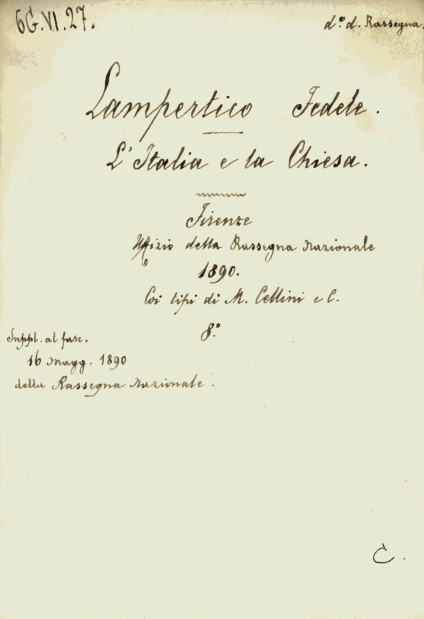 6G.VI.27.
d.º d. Rassegna.
Lampertico Fedele.
L'Italia e la Chiesa.
Firenze
Uffizio della Rassegna Nazionale
1890.
Coi tipi di M. Cellini e C.
8.º
Suppl. al fasc.
16 Magg. 1890
della Rassegna Nazionale.
C.